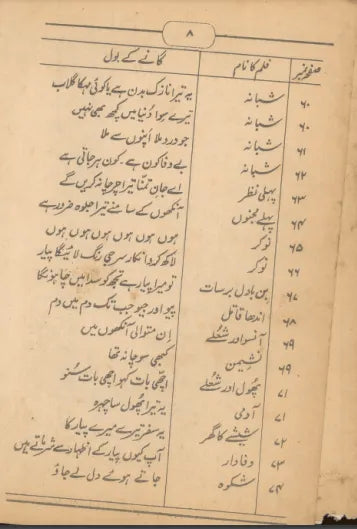 ۸
صفحہ نمبر فلم کا نام گانے کے بول
۶۰ شبانہ یہ تیرا نازک بدن ہے یا کوئی مہکا گلاب
۶۰ شبانہ تیرے سوا دُنیا میں کچھ بھی نہیں
۶۱ شبانہ جو درد ملا اپنوں سے ملا
۶۲ شبانہ بے وفا کون ہے۔ کون ہرجائی ہے
۶۳ پہلی نظر اے جانِ تمنّا تیرا چرچا نہ کریں گے
۶۴ مجنوں آنکھوں کے سامنے تیرا جلوہ ضرور ہے
۶۵ نوکر ہوں ہوں ہوں ہوں ہوں ہوں
۶۶ نوکر لاکھ کرو انکار سرجی رنگ لائیگا پیار
۶۷ بن بادل برسات تو میرا پیار ہے تجھ کو سدا میں چاہونگا
۶۸ اندھا قاتل پیو اور جیو جب تک دم میں دم
۶۹ آنسو اور شعلے اِن متوالی آنکھوں میں
۶۹ نشیمن کبھی سوچا نہ تھا
۷۱ پھول اور شعلے اچھی بات کہو اچھی بات سنو
۷۱ آدمی یہ تیرا پھول سا چہرہ
۷۲ شیشے کا گھر یہ سفر تیرے میرے پیار کا
۷۳ وفادار آپ کیوں پیار کے اظہار سے شرماتے ہیں
۷۴ شکوہ جاتے ہوئے دل لے جاؤ